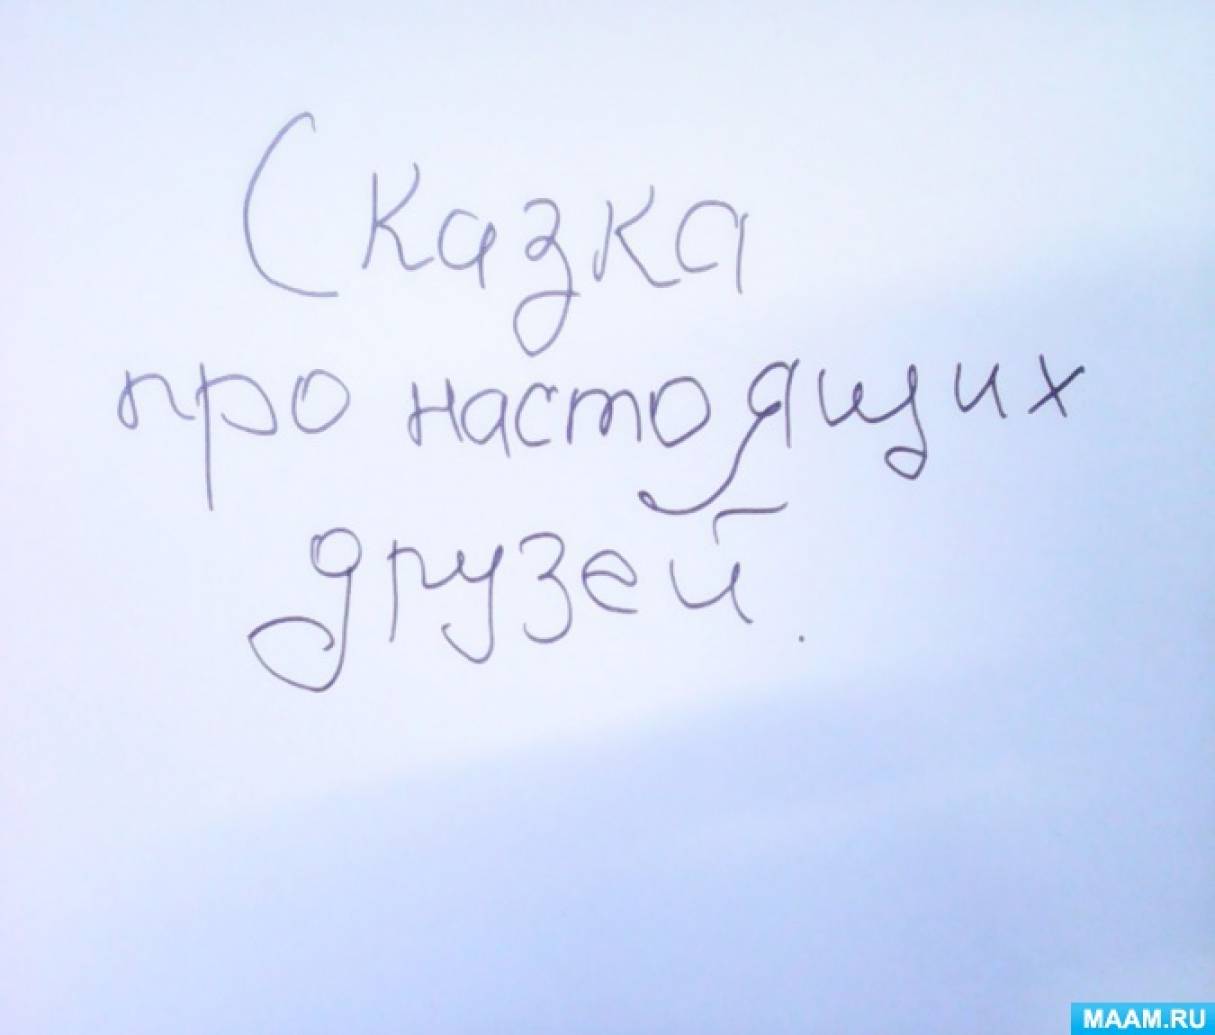 Сказка
про настоящих
друзей.
MAAM.RU